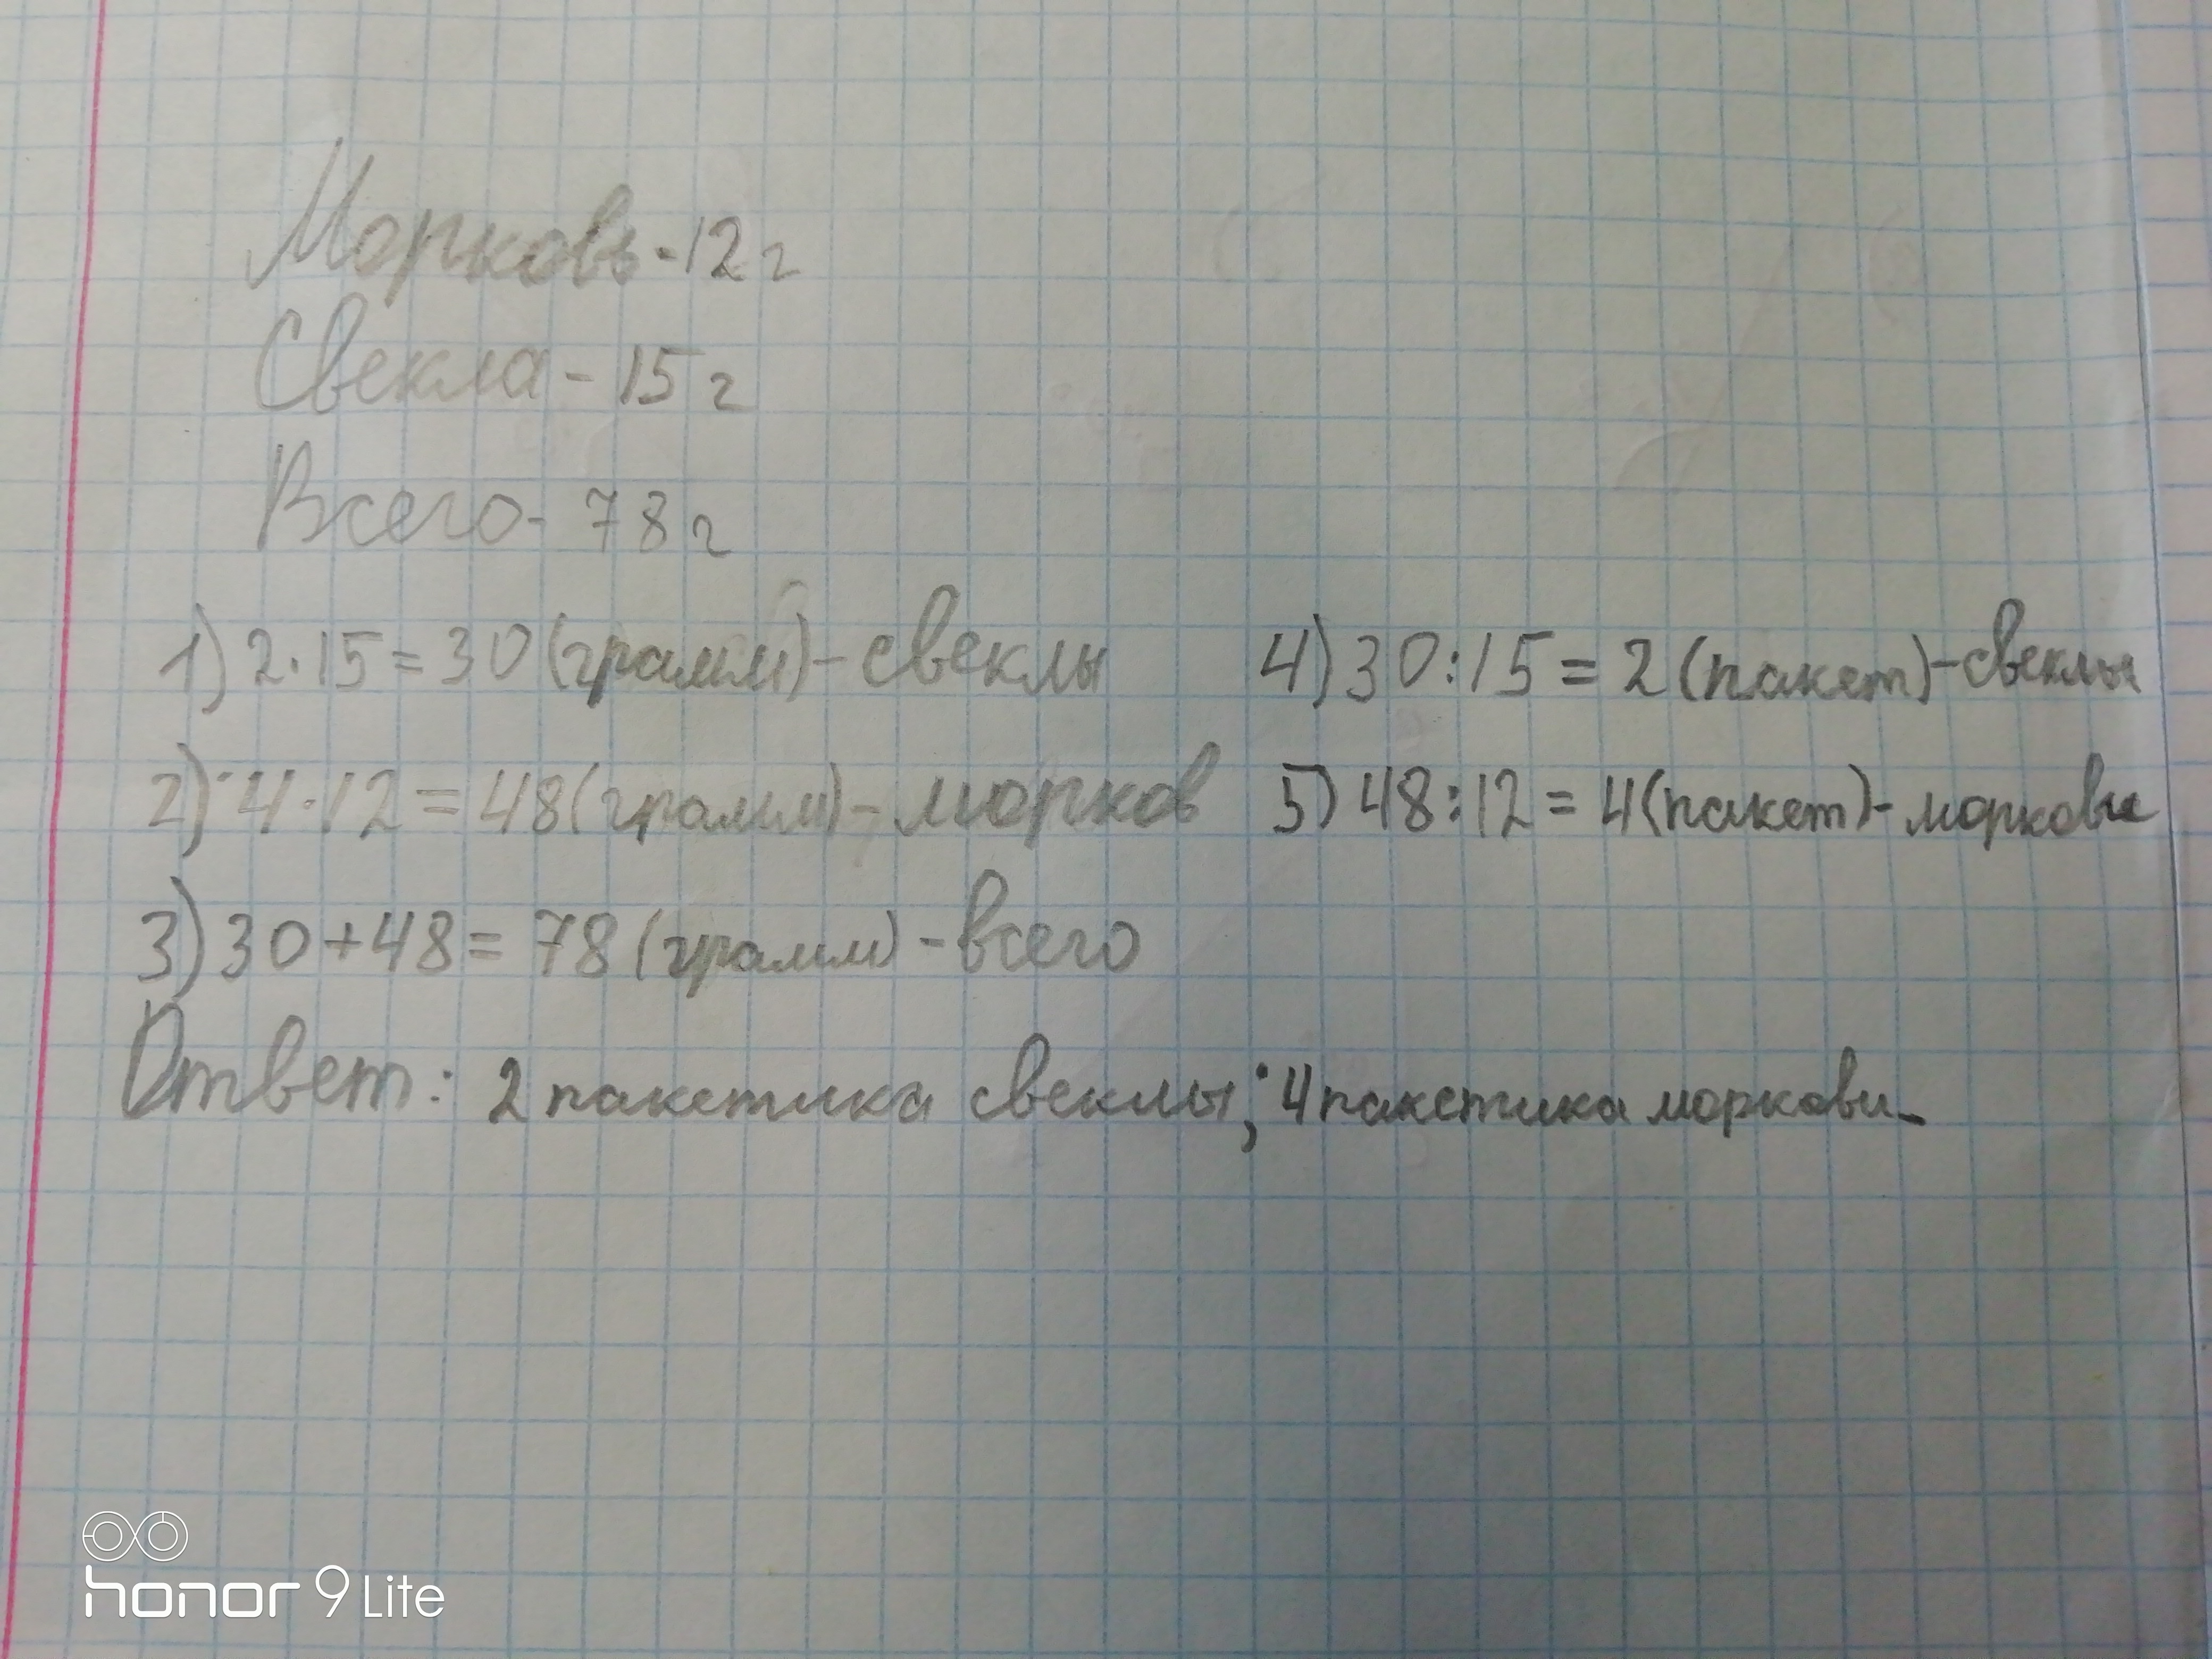 Морковь-12г
Свекла-15г
Всего-78г
1) 2·15=30(грамм)-свеклы
2) 4·12=48(грамм)-морков
3) 30+48=78(грамм)-всего
4) 30:15=2(пакет)-свеклы
5) 48:12=4(пакет)-моркови
Ответ: 2 пакетика свеклы; 4 пакетика моркови.
honor 9 Lite